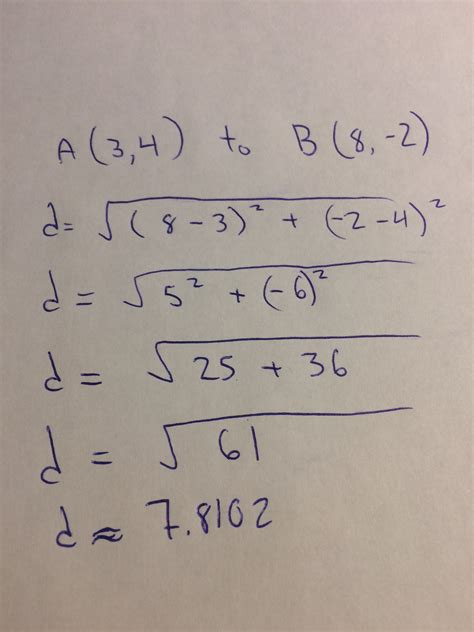 A (3,4) to B (8,-2)
d= √(8-3)² + (-2-4)²
d = √5² + (-6)²
d = √25 + 36
d = √61
d ≈ 7.8102